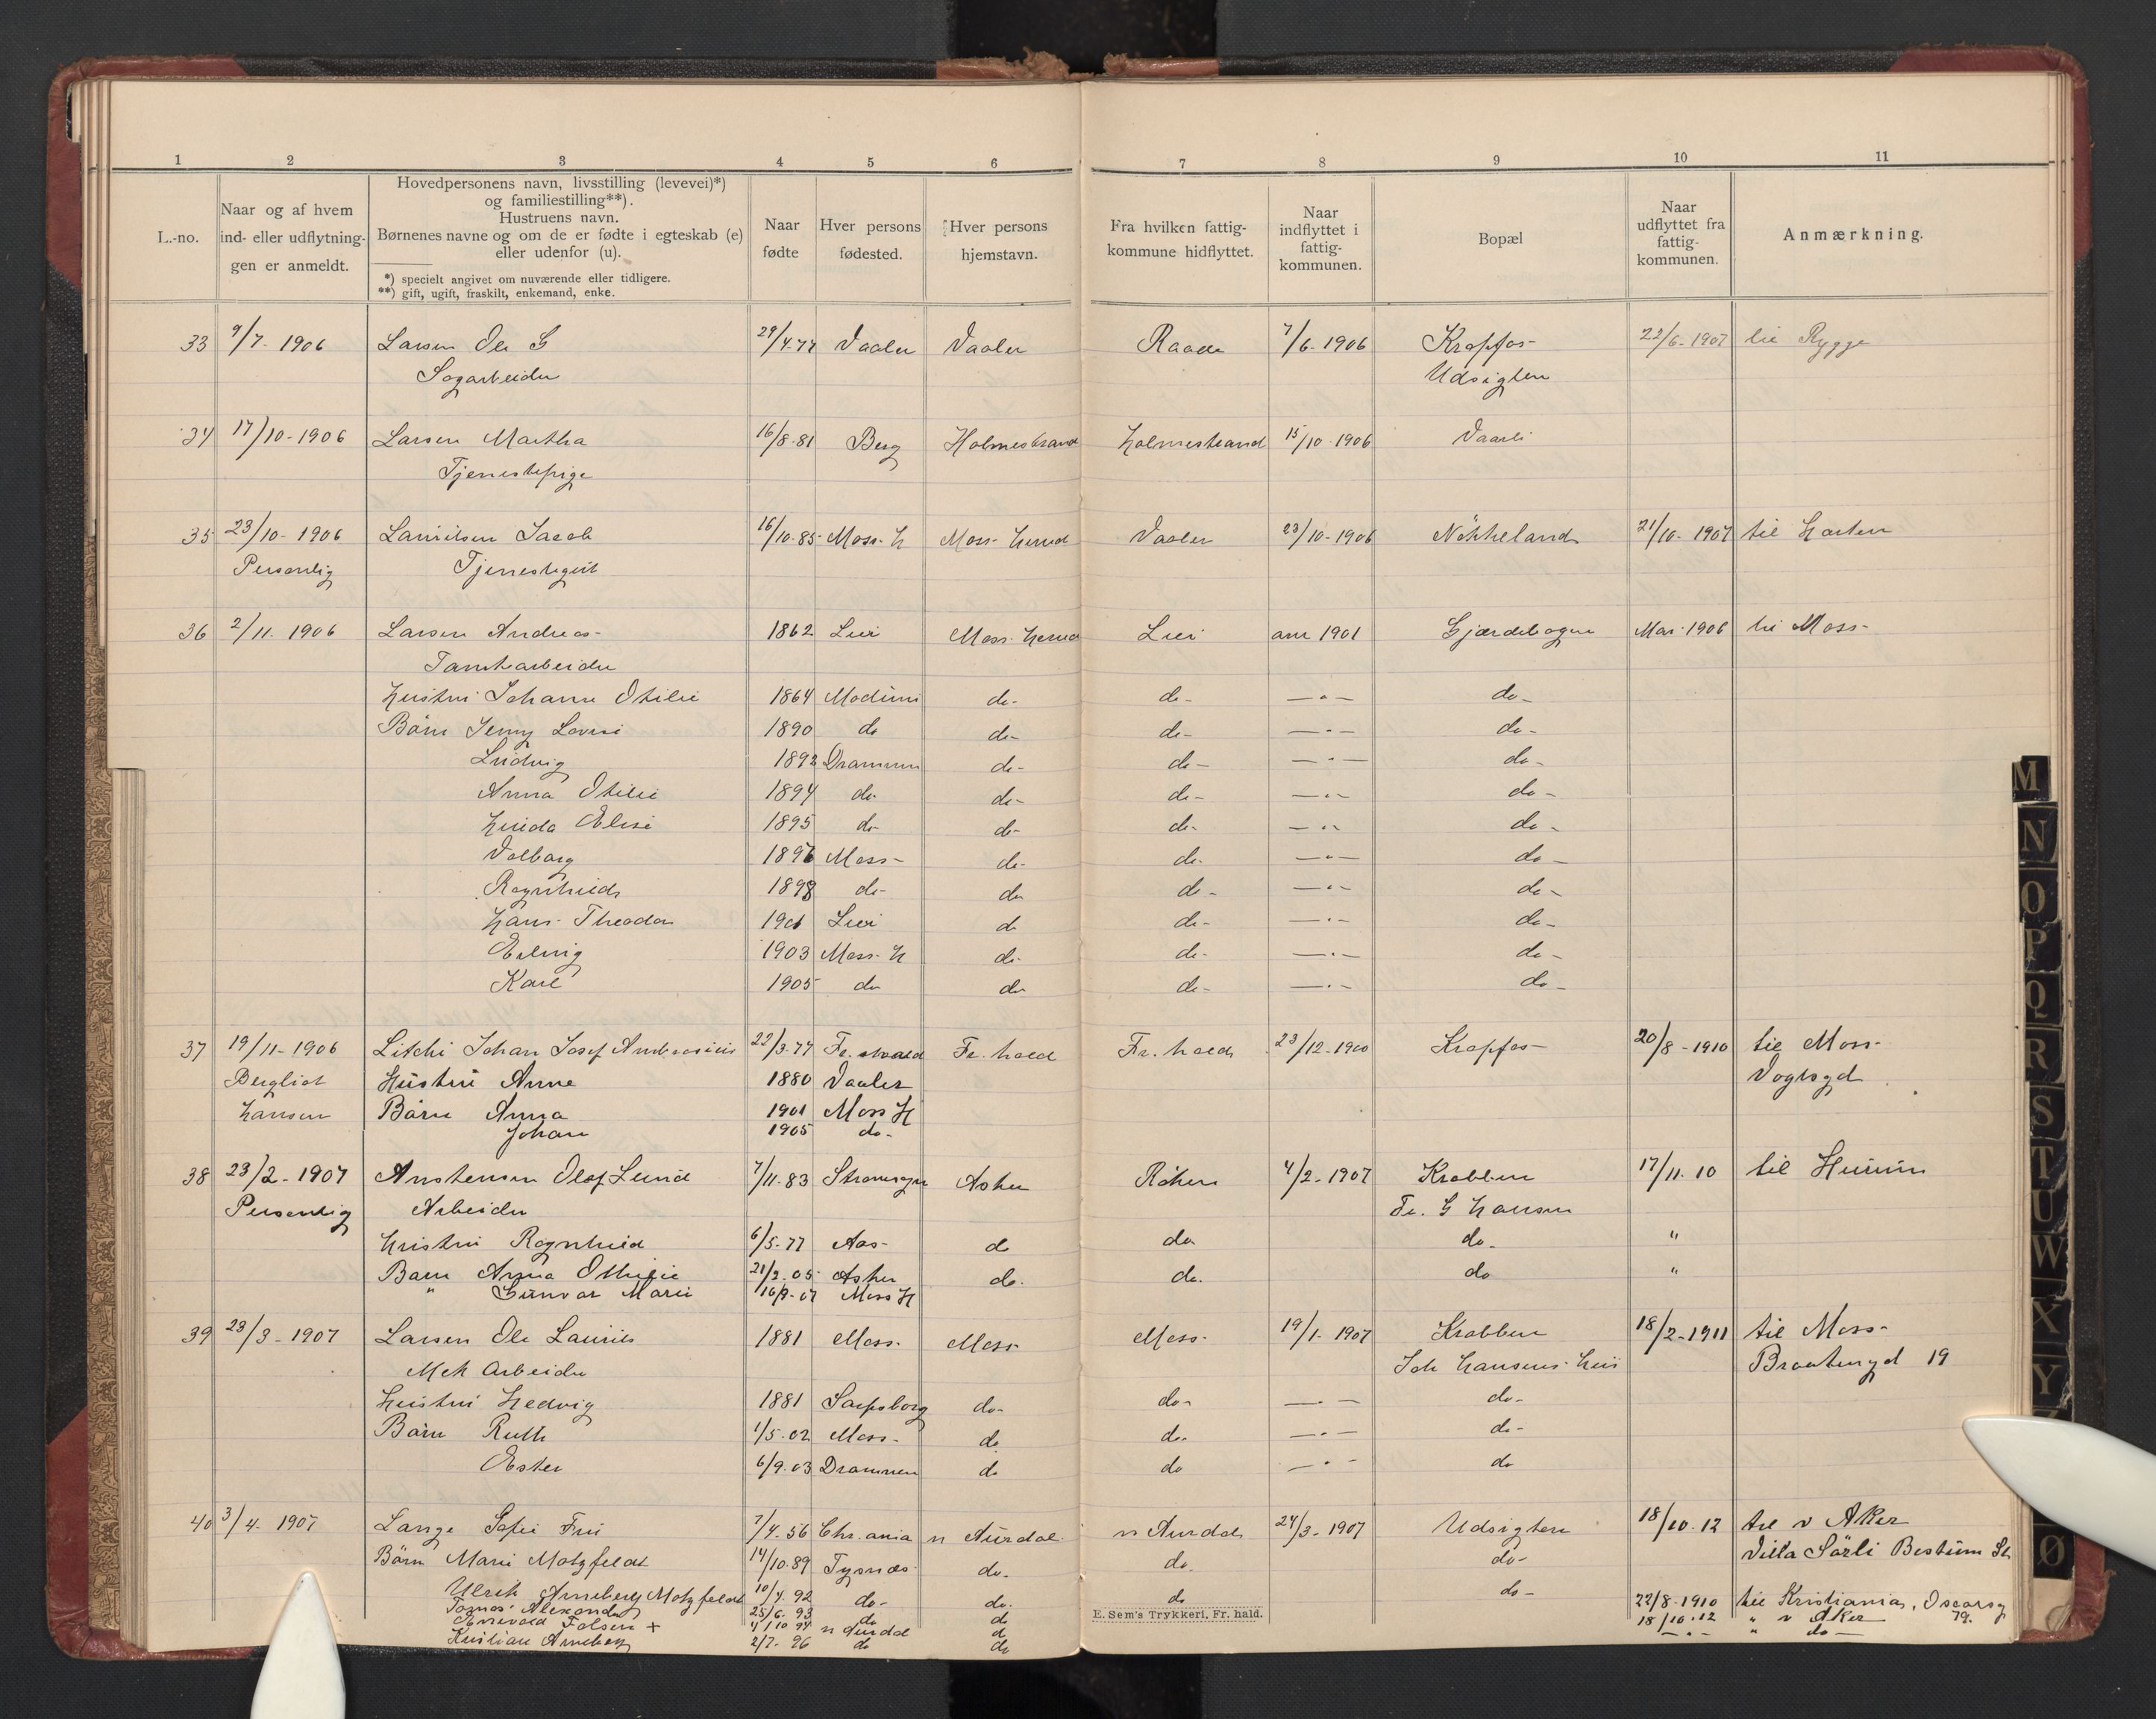 1 2 3 4 5 6 7 8 9 10 11
L.-no.
Naar og af hvem
ind- eller udflytnin-
gen er anmeldt.
Hovedpersonens navn, livsstilling (levevei)*)
og familiestilling**).
Hustruens navn.
Børnenes navne og om de er fødte i egteskab (e)
eller udenfor (u).
*) specielt angivet om nuværende eller tidligere.
**) gift, ugift, fraskilt, enkemand, enke.
Naar
fødte
Hver persons
fødested.
Hver persons
hjemstavn.
Fra hvilken fattig-
kommune hidflyttet.
Naar
indflyttet i
fattig-
kommunen.
Bopæl
Naar
udflyttet fra
fattig-
kommunen.
Anmærkning.
33 9/7 1906 Larsen Ole G 29/4.77 Vaaler Vaaler Raade 7/6-1906 Kropfos- 22/6-1907 til Rygge
Sagarbeider Udsigten
34 17/10-1906 Larsen Martha 16/8-81 Berg Holmestrand Holmestrand 15/10-1906 Vaarli
Tjenestepige
35 23/10-1906 Laurilsen Jacob 16/10-85 Moss-H Moss-Herred Vaaler 23/10-1906 Nökkeland 21/10-1907 til Horten
Personlig Tjenestegut
36 2/11-1906 Larsen Andreas- 1862 Lier Moss-Herred Lier 1901 Gjærdebogen Mai-1906 til Moss-
Tomtearbeider
Hustru Johanne Otilie 1864 Modum do- do- — " — do-
Börn Jenny Lovise 1890 do do- do- — " — do-
Ludvig 1892 Drammen do- do- — " — do-
Anna Otilie 1894 do- do- do- — " — do-
Elise 1895 do- do- do- — " — do-
Valborg 1896 Moss- do- do- — " — do-
Ragnhild 1898 do- do do- — " — do-
Hans Theodor 1901 Lier do do- — " — do-
Erling 1903 Moss-H do- do- — " — do-
Karl 1905 do do do- — " — do-
37 19/11-1906 Litchi Johan Josef Ambrosius 22/3-77 Fr. hald Fr. hald 23/12-1900 Kropfos- 20/8-1910 til Moss-
Bergliot Hustru Anne 1880 Vaaler Vogtsgd
Hansen Börn Anna 1901 Moss H
Johan 1905 do-
38 23/2-1907 Anstensen Olaf Lund 7/11-83 Asker Röken 4/2-1907 Krabben 17/11.10 til Hurum
Personlig Arbeider Fr. G Hansen
Hustru Ragnhild 6/5-77 Aas- do do do- "
Barn Anna Othilie 21/2-05 Asker do. do. do "
" Gunvor Marie Moss H
39 23/3-1907 Larsen Ole Laurits 1881 Moss- Moss- Moss- 19/1-1907 Krabben 18/2-1911 til Moss-
Mek Arbeider Joh Hansens Hus Braatengd 19
Hustru Hedvig 1881 Sarpsborg do- do- — " — do-
Börn Ruth 1/5-02 Moss- do do- — " — do-
Ester 6/9-03 Drammen do do — " — do
40 3/4-1907 Lange Sofie Fru 7/4-56 Chr.ania n Aurdal n Aurdal 24/3-1907 Udsigten 18/10.12 til v Aker
Börn Marie Motzfeldt 14/10-89 Tysnæs do- do. do- Villa Sörli Bestum St
Ulrik Anneberg Motzfeldt 10/4.92 do- do. do do- 22/8-1910 til Kristiania, Oscarsg
Alexander 25/6-93 do do 18/10.12 " v Aker 79.
Falsen + n Aurdal do — " — " do —
Kristian Anneberg 2/7-96 do do
E. Sem's Trykkeri, Fr. hald.
M
N
O
P
Q
R
S
T
U
W
X
Y
Ø